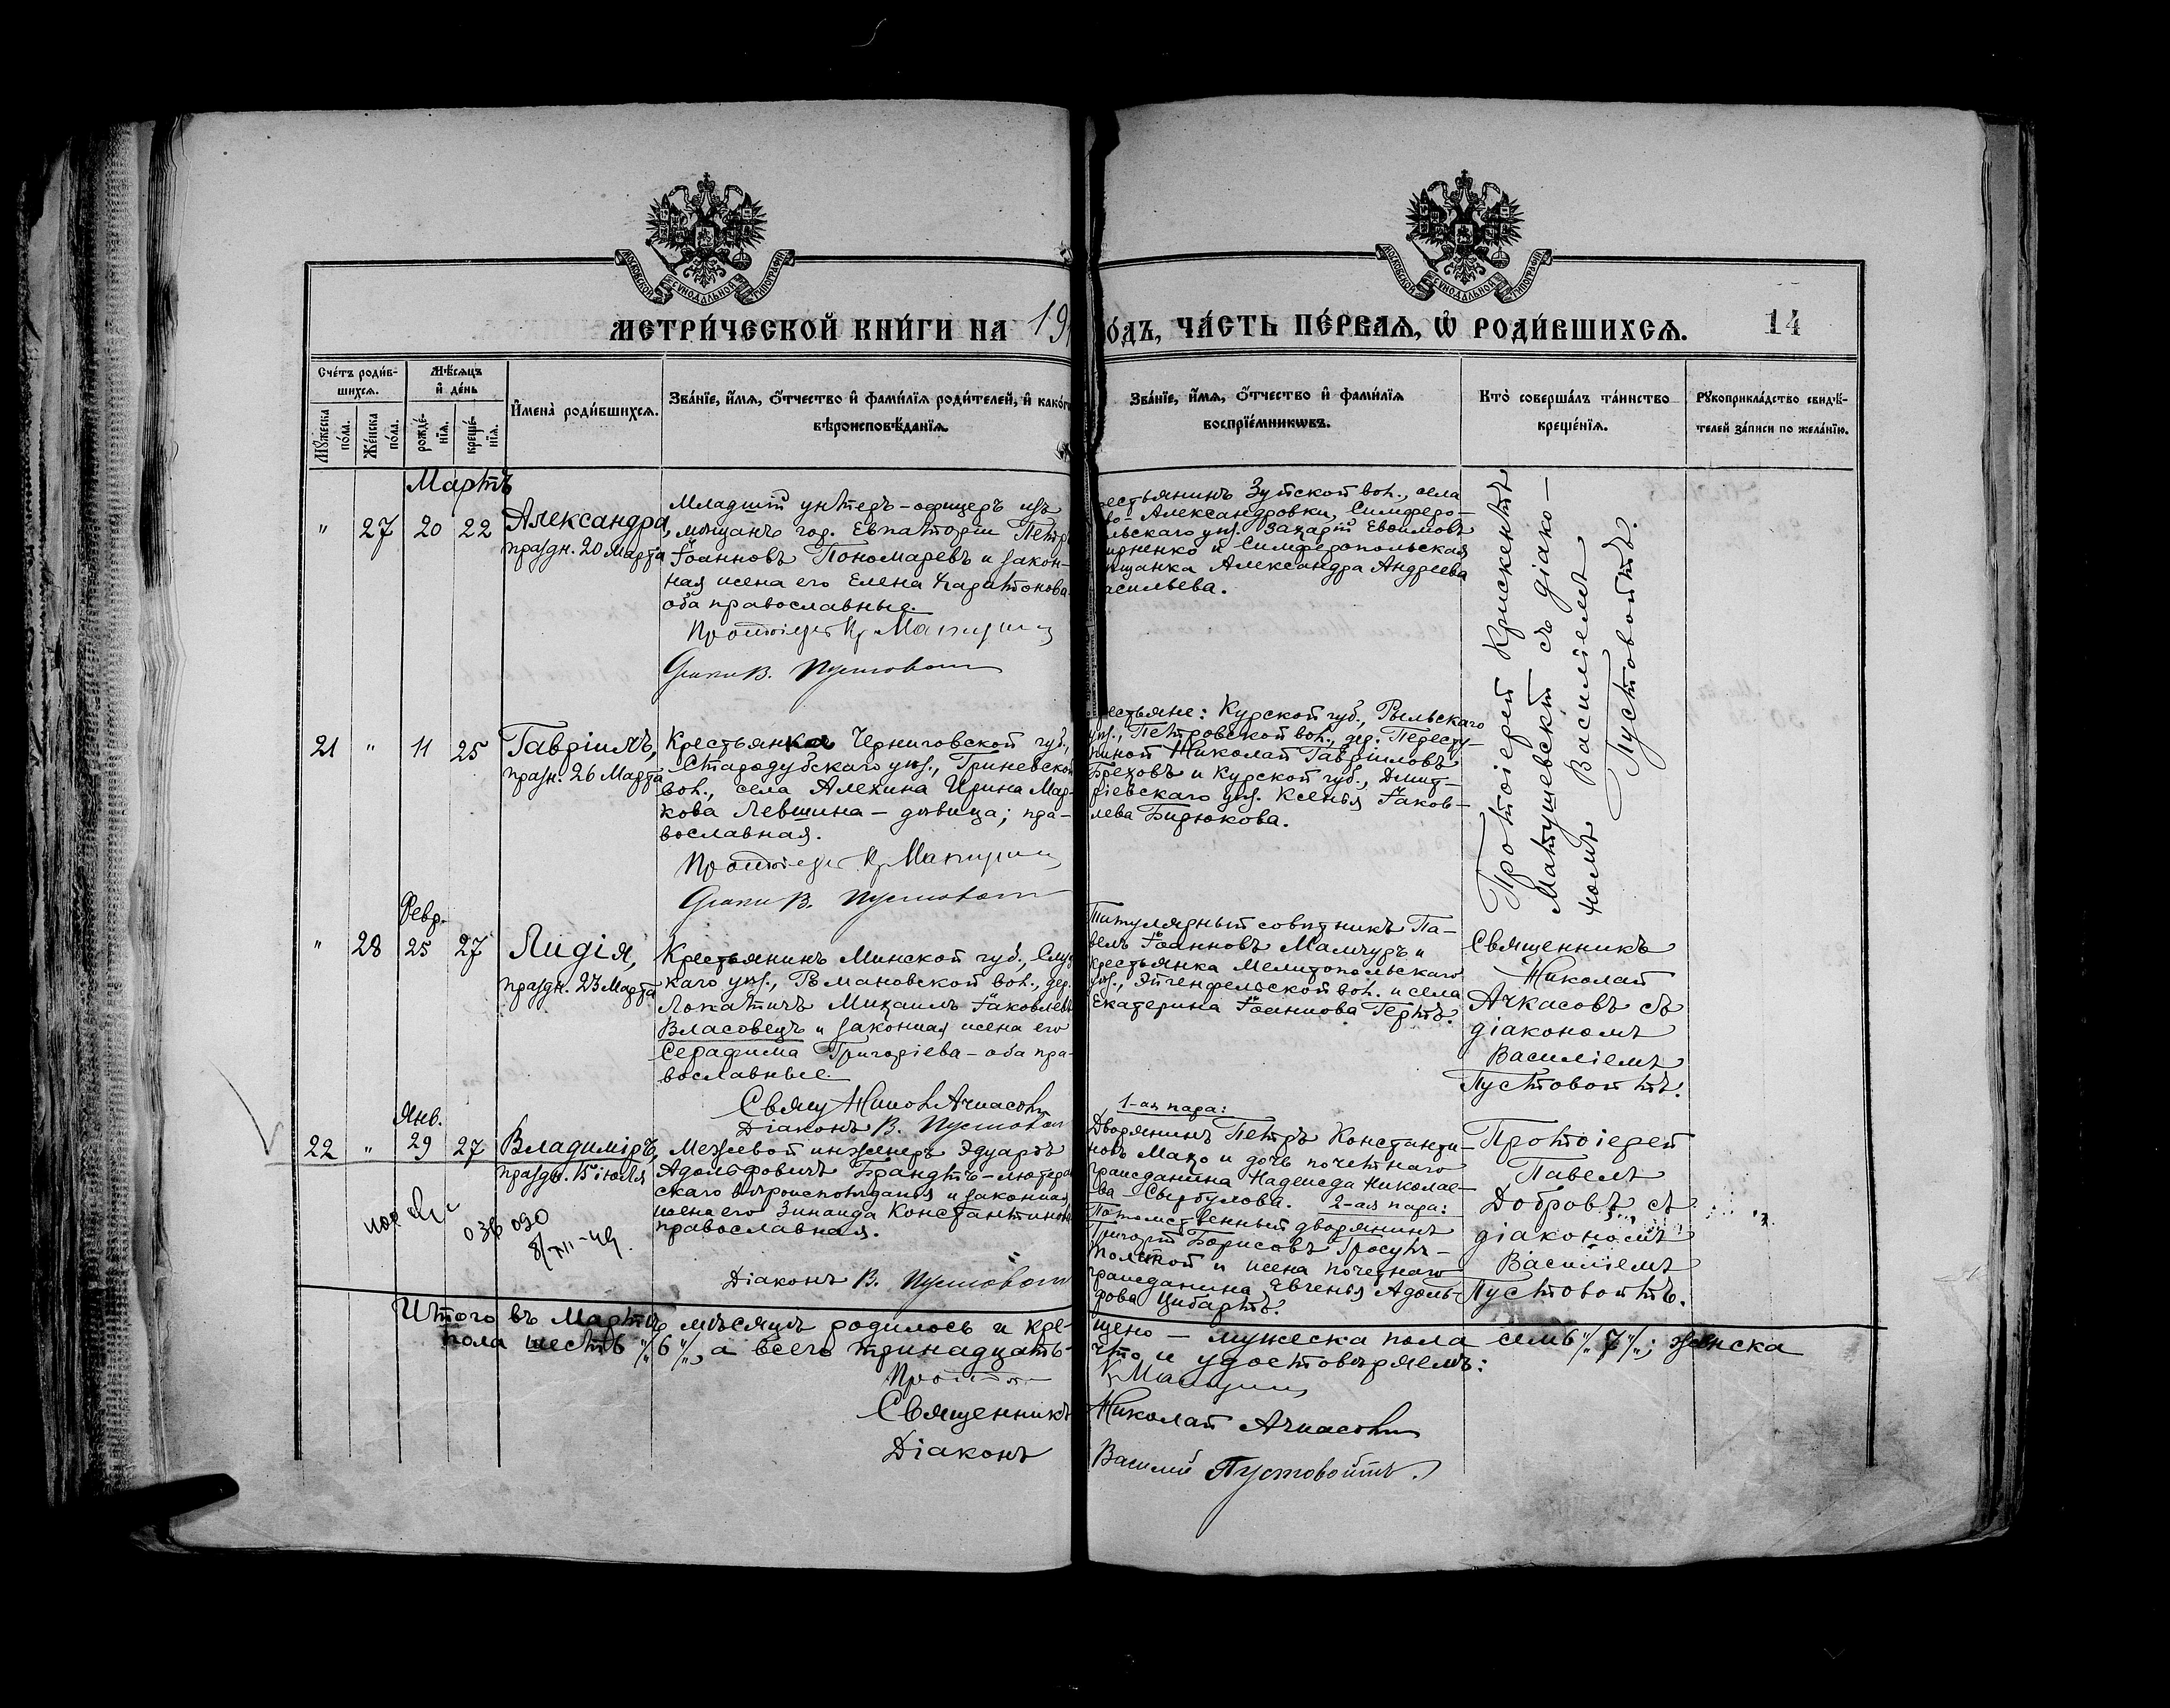 МОСКОВСКОЙ СѴНОДАЛЬНОЙ ТИПОГРАФІИ
МОСКОВСКОЙ СѴНОДАЛЬНОЙ ТИПОГРАФІИ
МЕТРИ́ЧЕСКОЙ КНИ́ГИ НА 19
О́ДЪ, ЧА́СТЬ ПЕ́РВАѦ, Ѡ҆ РОДИ́ВШИХСѦ. 14
Сче́тъ роди́в-
шихсѧ.
Мꙋ́жеска по́ла.
Же́нска по́ла.
Мѣ́сѧцъ
и҆ де́нь
рожде́-
нїѧ.
креще́-
нїѧ.
И҆мена̀ роди́вшихсѧ.
Зва́нїе, и҆́мѧ, ѻ҆́тчество и҆ фами́лїѧ роди́телей, и҆ како́гѡ
вѣроисповѣ́данїѧ.
Зва́нїе, и҆́мѧ, ѻ҆́тчество и҆ фами́лїѧ
воспрїе́мникѡвъ.
Кто̀ соверша́лъ та́инство
креще́нїѧ.
Рꙋкоприкла́дство свидѣ́-
телей за́писи по жела́нїю.
Мартъ
" 27 20 22 Александра,
праздн. 20 Марта
Младшій унтеръ-офицеръ изъ
мѣщанъ гор. Евпаторіи Петръ
Іоанновъ Пономаревъ и закон-
ная жена его Елена Харитонова
оба православные.
Протоіерей Кр Матуш
Діаконъ В. Пустовойт
рестьянинъ Зуйской вол., села
во-Александровки, Симферо-
льскаго уѣз. Захарій Евѳимовъ
рненко и Симферопольская
щанка Александра Андреева
асильева.
Протоіерей Крискентъ
Матушевскій съ діако-
номъ Василіемъ
Пустовойтъ.
21 " 11 25 Гавріилъ,
праздн. 26 Марта
Крестьянка Черниговской губ.,
Стародубскаго уѣз., Гриневской
вол., села Алехина Ирина Мар-
кова Левшина - дѣвица; пра-
вославная.
Протоіерей Кр Матуш
Діаконъ В. Пустовойт
рестьяне: Курской губ., Рыльскаго
уѣз., Петровской вол., дер. Пересту-
пиной Николай Гавріиловъ
Бреховъ и Курской губ., Дмит-
ріевскаго уѣз. Ксенія Іаков-
лева Бирюкова.
Февр.
" 28 25 27 Лидія,
праздн. 23 Марта
Крестьянинъ Минской губ., Слуц
каго уѣз., Романовской вол., дер.
Локатичъ Михаилъ Іаковлевъ
Власовецъ и законная жена его
Серафима Григоріева - оба пра-
вославные.
Свящ Никол Ачкасовъ
Діаконъ В. Пустовойт
Титулярный совѣтникъ Па-
велъ Іоанновъ Мамчуръ и
крестьянка Мелитопольскаго
уѣз., Эйгенфельской вол. и села
Екатерина Іоаннова Гертъ.
Священникъ
Николай
Ачкасовъ съ
діакономъ
Василіемъ
Пустовойтъ.
Янв.
22 " 29 27 Владиміръ,
праздн. 15 іюля
036 090
8/XII-49.
Межевой инженеръ Эдуардъ
Адольфовичъ Брандтъ - лютеран
скаго вѣроисповѣданія и законная
жена его Зинаида Константинова
православная.
Діаконъ В. Пустовойт
1-ая пара:
Дворянинъ Петръ Константи-
новъ Махо и дочь почетнаго
гражданина Надежда Николае-
ва Сырбулова. 2-ая пара:
Потомственный дворянинъ
Григорій Борисовъ Гросулъ-
Толстой и жена почетнаго
гражданина Евгенія Адоль-
фова Цибартъ.
Протоіерей
Павелъ
Добровъ съ
діакономъ
Василіемъ
Пустовойтъ.
Итого въ Мартѣ мѣсяцѣ родилось и кре-
щено - мужеска пола семь "/7"/; женска
пола шесть "/6"/, а всего тринадцать-
что и удостовѣряемъ:
Протоі Кр Матуш
Священникъ Николай Ачкасовъ
Діаконъ Василій Пустовойтъ.